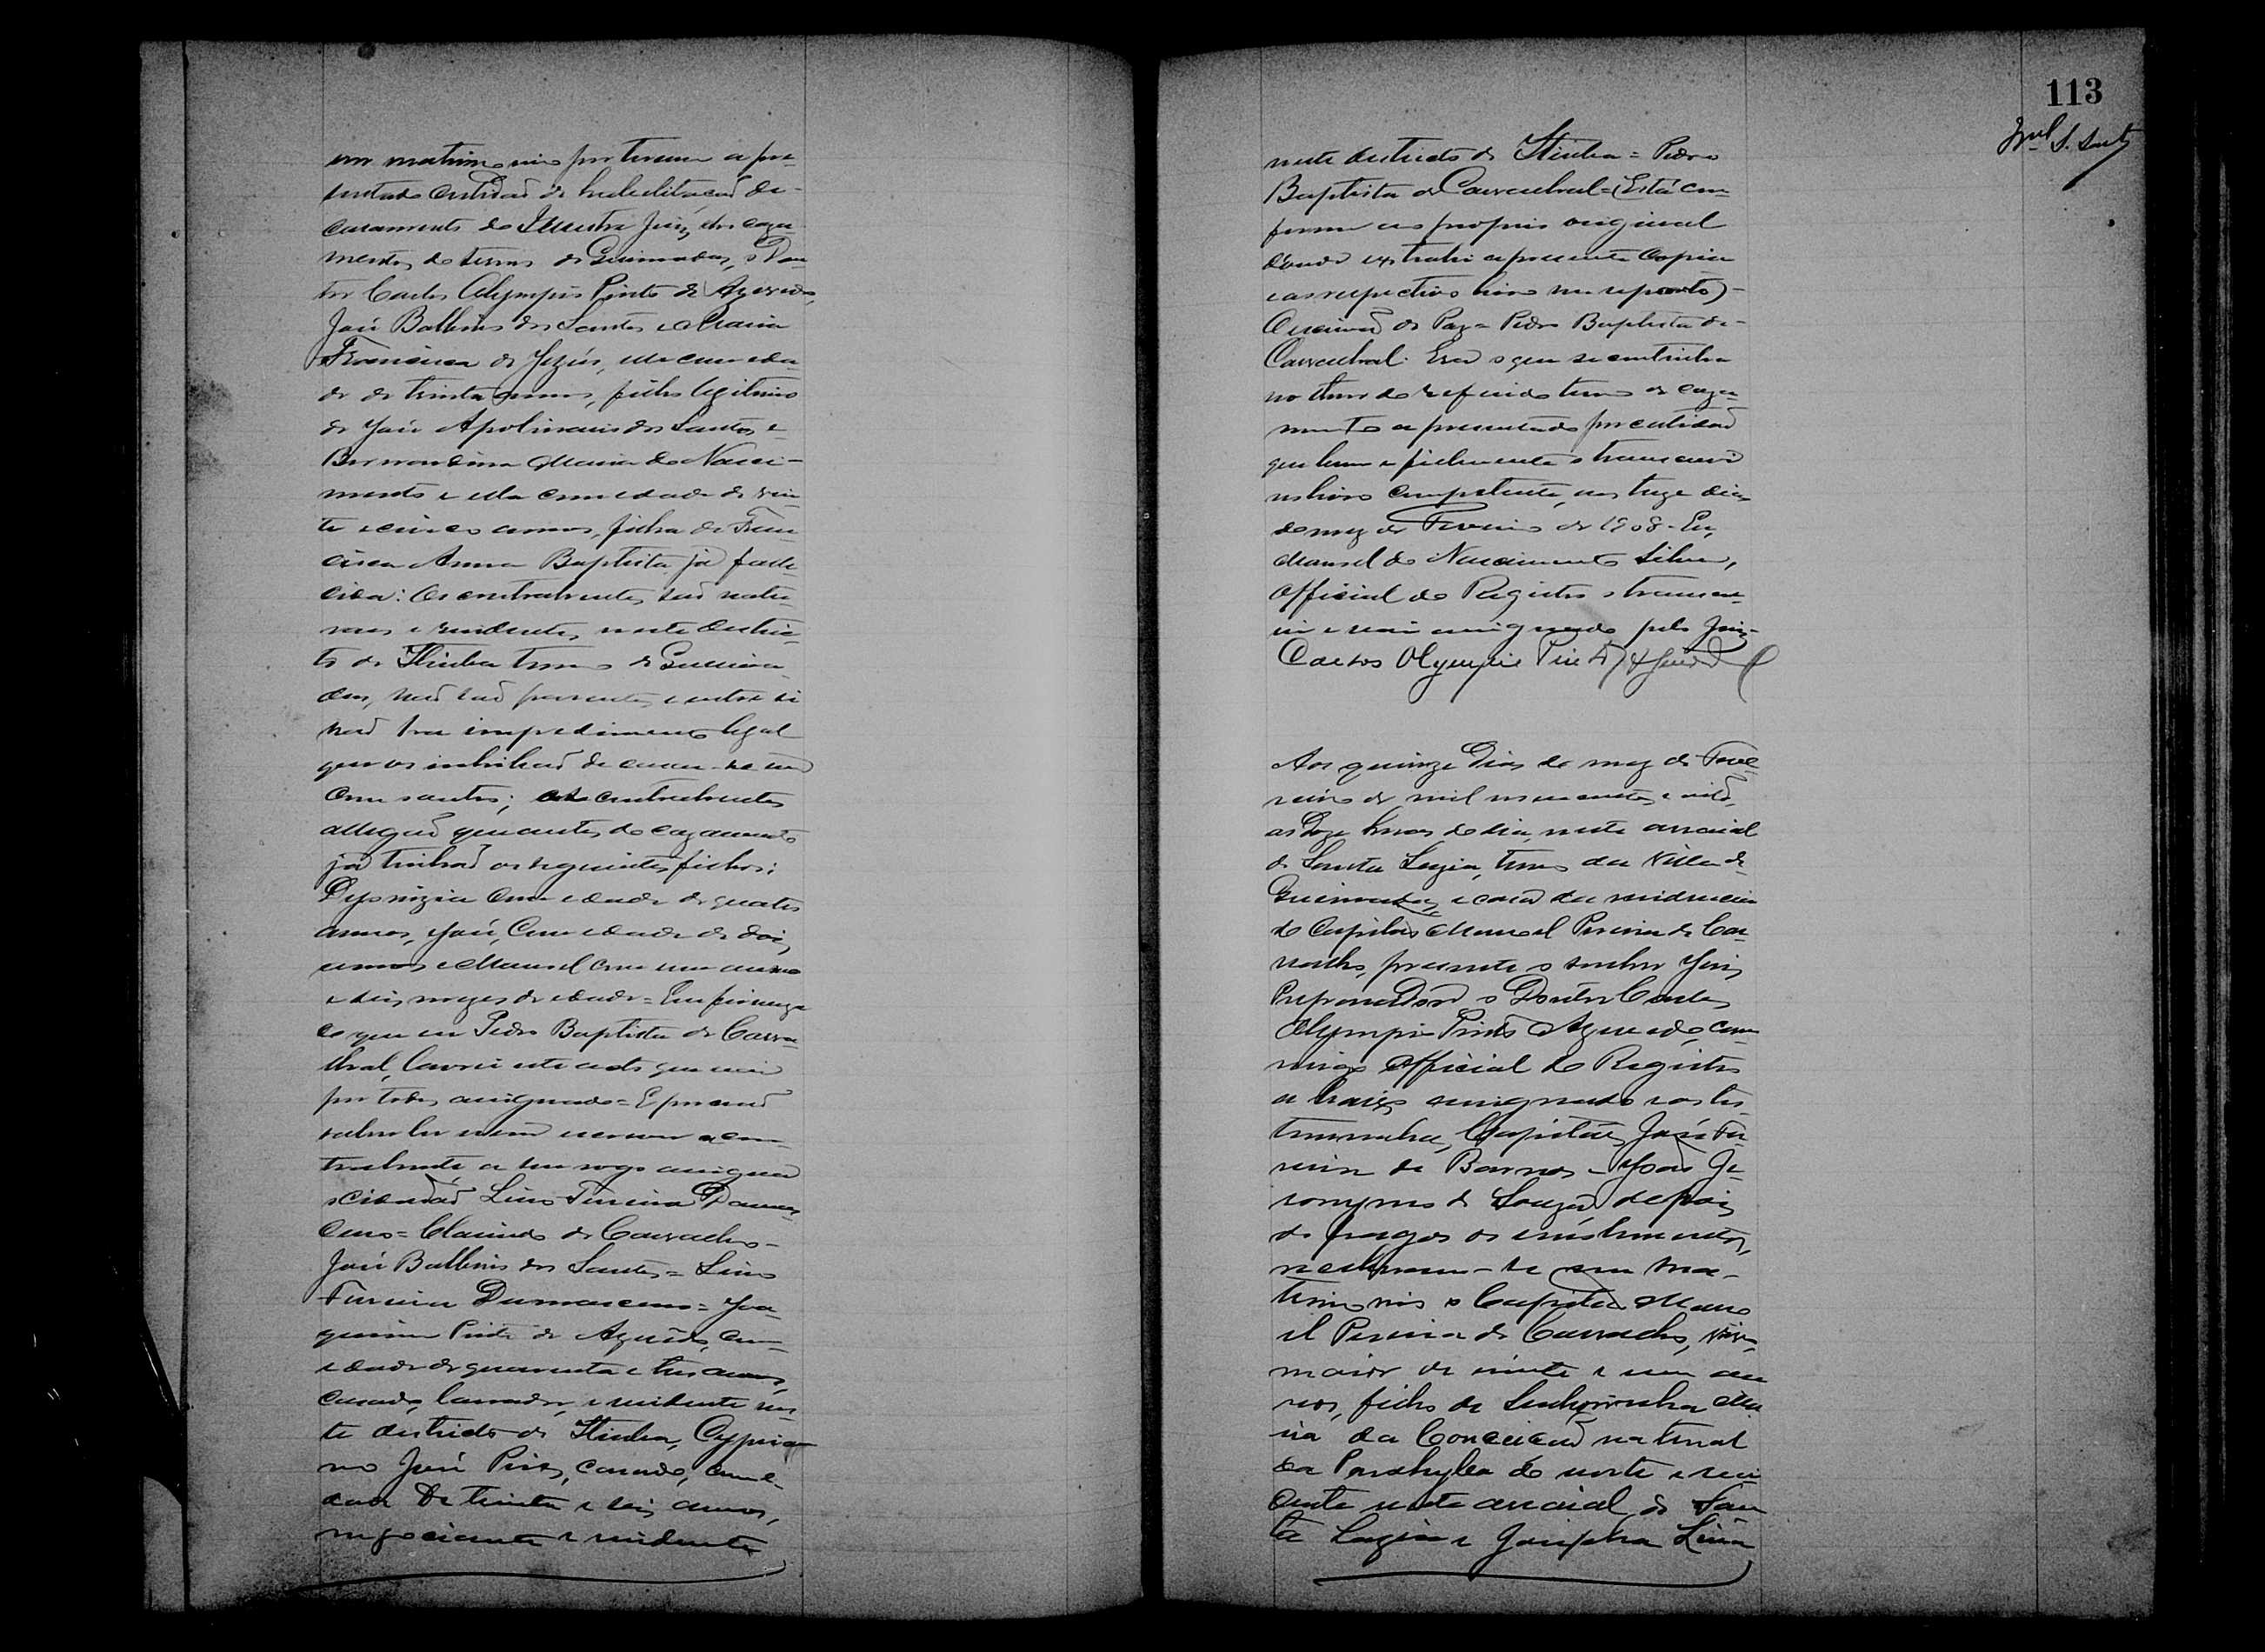 em matrimonio por terem apre-
sentado certidão de habilitação de
casamento do Illustre Juiz dos caza-
mentos do termo de Queimadas, o Dou-
tor Carlos Olympio Pinto de Azevedo,
José Balbino dos Santos e Maria
Francisca de Jezús, elle com eda-
de de trinta annos, filho legitimo
de José Apolinario dos Santos e
Bernardina Maria do Nasci-
mento e ella com edade de vin-
te e cinco annos, filha de Fran-
cisca Anna Baptista já falle-
cida: Os contrahentes são natu-
raes e residentes neste distric-
to de Itiuba termo de Queima-
das, não são parentes e entre si
não ha impedimento legal
que os inhibão de casar-se um
com outro; os contrahentes
allegão que antes do cazamento
já tinhão os seguintes filhos:
Dyonizia com edade de quatro
annos, José, com edade de dois
annos e Manoel com um anno
e seis mezes de edade = Em firmeza
do que eu Pedro Baptista de Carva-
lhal, lavrei este acto que vai
por todos assignado = E por não
saber ler nem escrever a con-
trahente a seu rogo assignou
o cidadão Lino Ferreira Damas-
ceno = Claudio de Carvalho -
José Balbino dos Santos = Lino
Ferreira Damasceno = Joa-
quim Pinto de Azevedo, com
edade de quarenta e tres annos,
casado, lavrador, e residente nes-
te districto de Itiuba, Cypria-
no José Pires, casado, com e-
dade de trinta e seis annos,
negociante e residente
113
neste districto de Itiuba = Pedro
Baptista de Carvalhal = (Está con-
forme ao proprio original
donde extrahi a presente copia
e ao respectivo livro me reporto) -
Escrivão de Paz = Pedro Baptista de
Carvalhal. Era o que se continha
no theor do referido termo de caza-
mento apresentado por certidão
que bem e fielmente o transcrevi
no livro competente, aos treze dias
do mez de Fevereiro de 1908 - Eu,
Manoel do Nascimento Silva,
Official do Registro o transcre-
vi e vai assignado pelo Juiz -
Carlos Olympio Pinto de Azevedo
Aos quinze dias do mez de Feve-
reiro de mil novecentos e oito,
as doze horas do dia, neste arraial
de Santa Luzia, termo da Villa de
Queimadas, e casa da residencia
do Capitão Manoel Pereira de Car-
valho, presente o senhor Juiz
Preparador o Doutor Carlos
Olympio Pinto Azevedo, com-
migo Official do Registro
a baixo assignado e as tes-
temunhas, Capitão José Fer-
reira de Barros e João Je-
ronymo de Souza depois
de pagos os emolumentos,
receberam-se em ma-
trimonio o Capitão Mano
el Pereira de Carvalho,
maior de vinte e um an
nos, filho de Senhorinha Ma
ria da Conceição natural
da Parahyba do norte e resi
dente neste arraial de San
ta Luzia e Josepha Lina